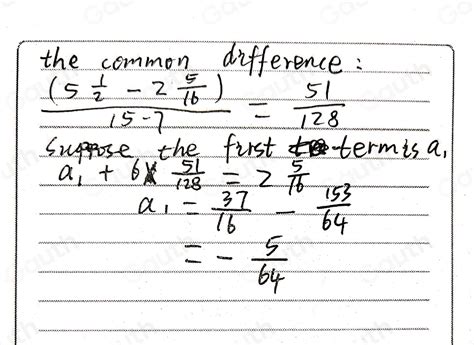 the common difference:
(5 1/2 - 2 5/16) / 15-7 = 51/128
Suppose the first term is a₁
a₁ + 6 × 51/128 = 2 5/16
a₁ = 37/16 - 153/64
= - 5/64